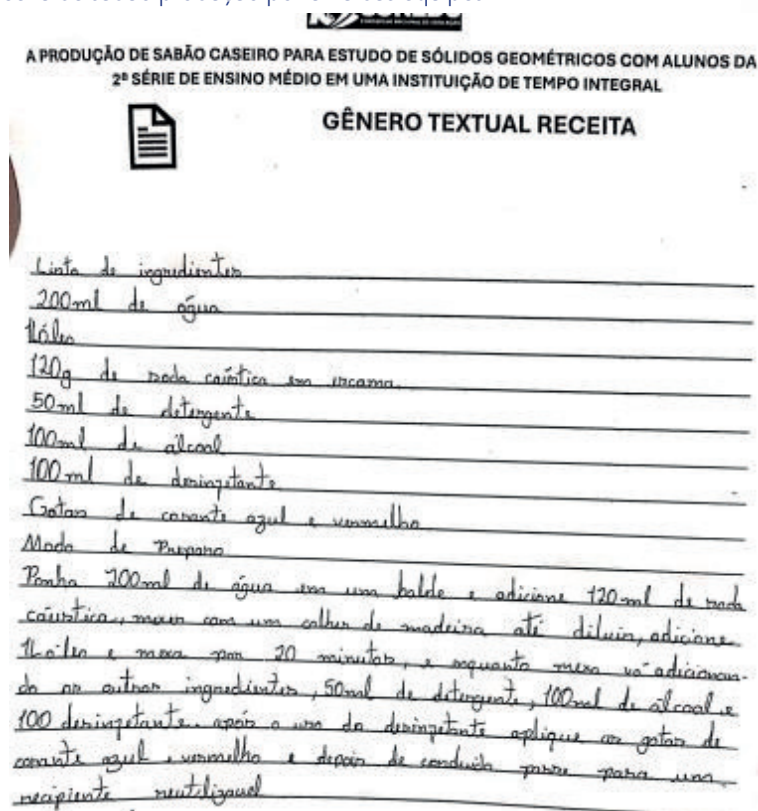 A PRODUÇÃO DE SABÃO CASEIRO PARA ESTUDO DE SÓLIDOS GEOMÉTRICOS COM ALUNOS DA
2ª SÉRIE DE ENSINO MÉDIO EM UMA INSTITUIÇÃO DE TEMPO INTEGRAL
GÊNERO TEXTUAL RECEITA
Lista de ingredientes
200ml de água
1L óleo
120g de soda caústica em escama
50ml de detergente
100ml de álcool
100 ml de desinzetante
Gotas de corante azul e vermelho
Modo de Preparo
Ponha 200ml de água em um balde e adicione 120 ml de soda
caústica, mexer com um colher de madeira até diluir, adicione
1L óleo e mexa por 20 minutos, e enquanto mexa vá adicionan-
do os outros ingredientes, 50ml de detergente, 100ml de álcool e
100 desinzetante. após o uso do desinzetante aplique as gotas de
corante azul e vermelho e depois de passe para um
recipiente reutilizavel